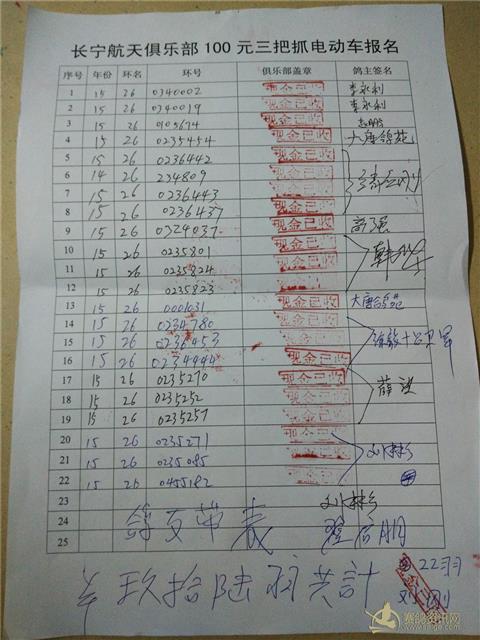 长宁航天俱乐部 100 元三把抓电动车报名
序号 年份 环名 环号 俱乐部盖章 鸽主签名
1 15 26 0340002 现金已收 李永利
2 15 26 0340019 现金已收 李永利
3 15 26 0105674 现金已收
4 15 26 0235454 现金已收 大唐鸽苑
5 15 26 0236442 现金已收
6 14 26 234809 现金已收
7 15 26 0236443 现金已收
8 15 26 0236437 现金已收
9 15 26 0324037 现金已收 高强
10 15 26 0235801 现金已收
11 15 26 0235824 现金已收
12 15 26 0235823 现金已收
13 15 26 0001031 现金已收 大唐鸽苑
14 15 26 0234780 现金已收
15 15 26 0236453 现金已收
16 15 26 0234444 现金已收
17 15 26 0235270 现金已收 薛
18 15 26 0235252 现金已收
19 15 26 0235257 现金已收
20 15 26 0235271 现金已收
21 15 26 0235085 刘林乡
22 15 26 0455182
23 刘林乡
24
25
鸽友带表
玖拾陆羽共計 22羽
赛鸽资讯网